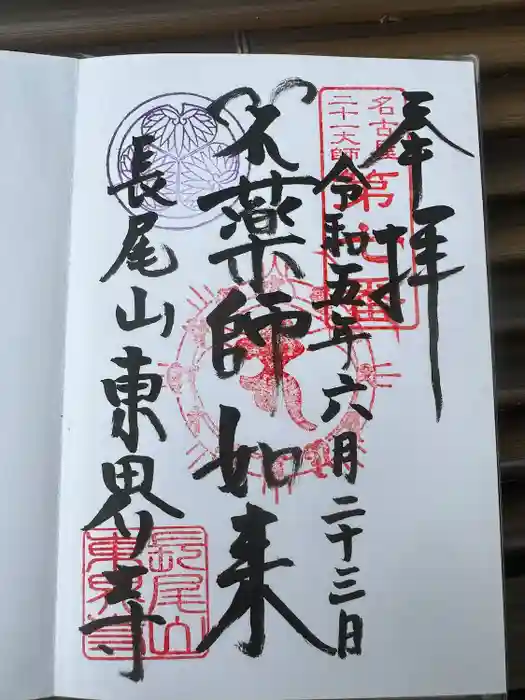 奉拝
名古屋
二十一大師
第七番
令和五年六月二十三日
薬師如来
長尾山東界寺
長尾山
東界寺